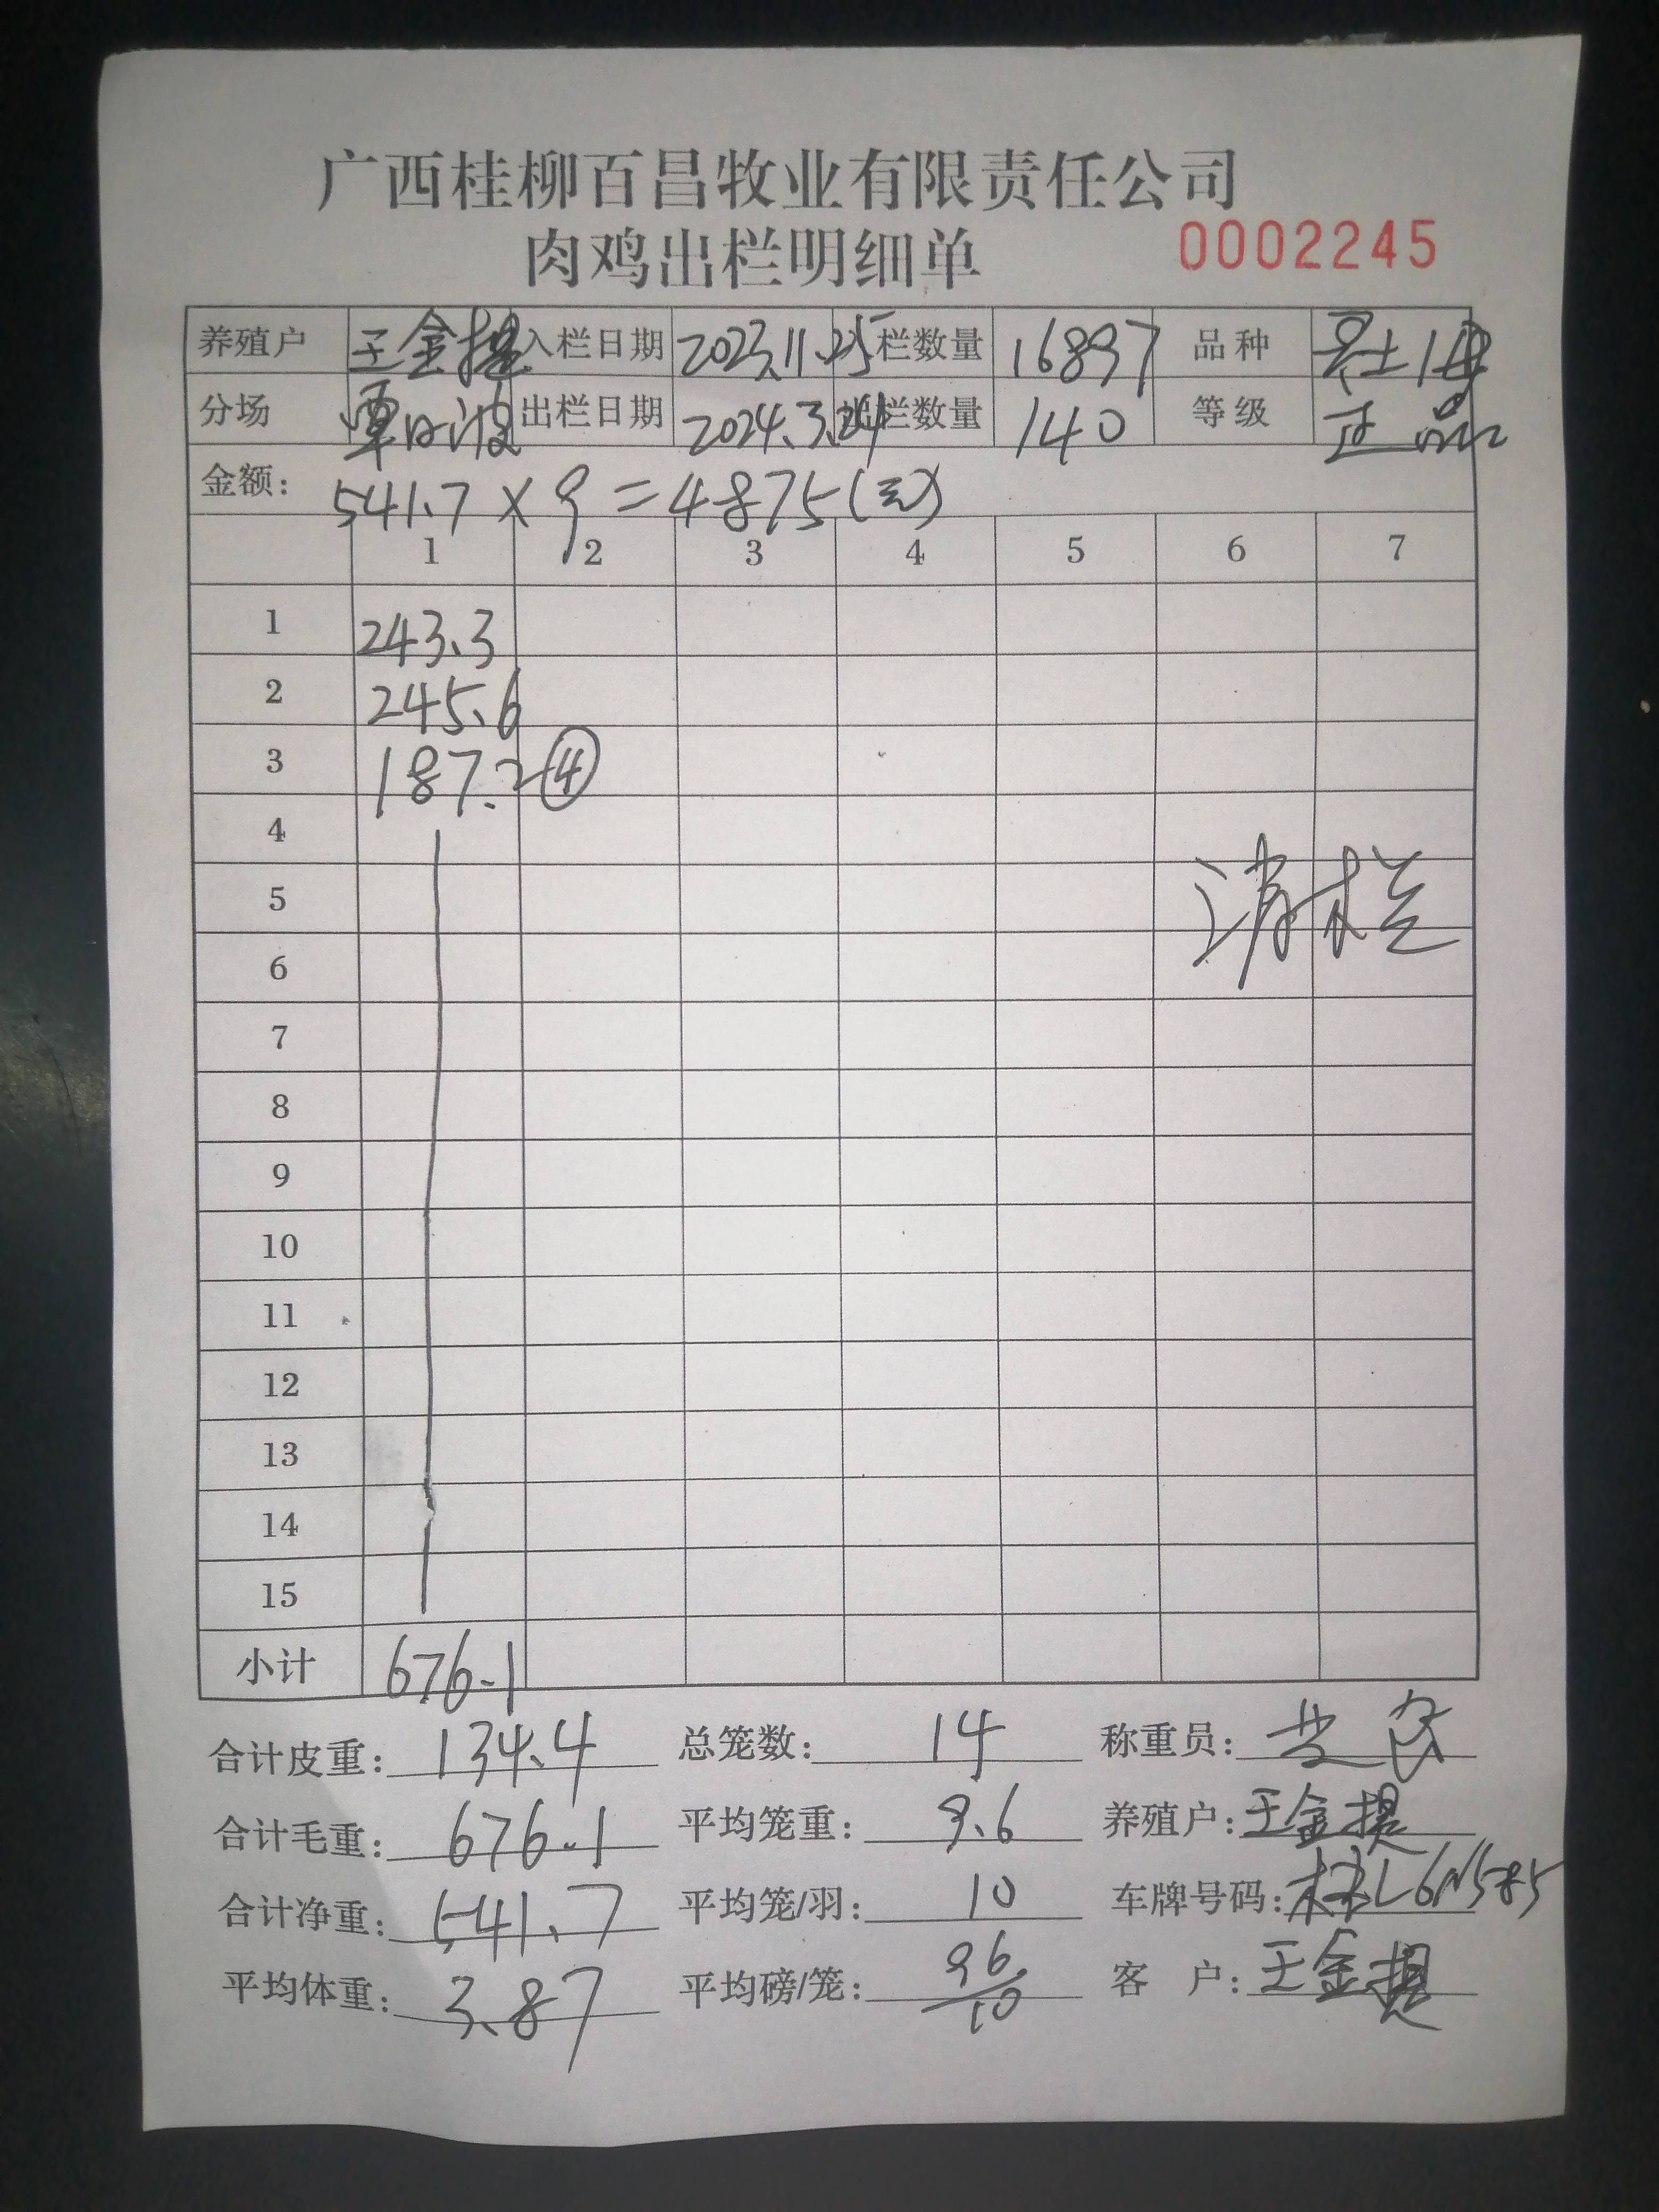 广西桂柳百昌牧业有限责任公司
肉鸡出栏明细单 0002245
养殖户 王金提 入栏日期 2023.11.25 栏数量 16897 品种
分场 覃日波 出栏日期 2024.3.24 出栏数量 140 等级 正品
金额: 541.7×9=4875(元)
1 2 3 4 5 6 7
1 243.3
2 245.6
3 187.2 ④
4
5 清栏
6
7
8
9
10
11
12
13
14
15
小计 676.1
合计皮重: 134.4 总笼数: 14 称重员:
合计毛重: 676.1 平均笼重: 9.6 养殖户: 王金提
合计净重: 541.7 平均笼/羽: 10 车牌号码: 桂L6N585
平均体重: 3.87 平均磅/笼: 客 户: 王金提